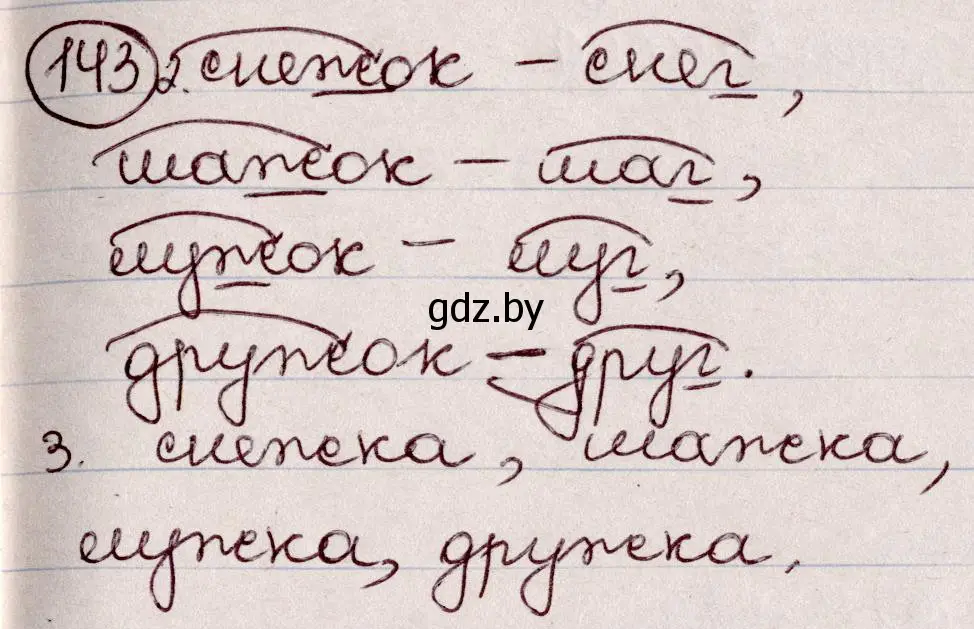 143 2. снежок – снег,
шажок – шаг,
лужок – луг,
gdz.by
дружок – друг.
3. снежка, шажка,
лужка, дружка.